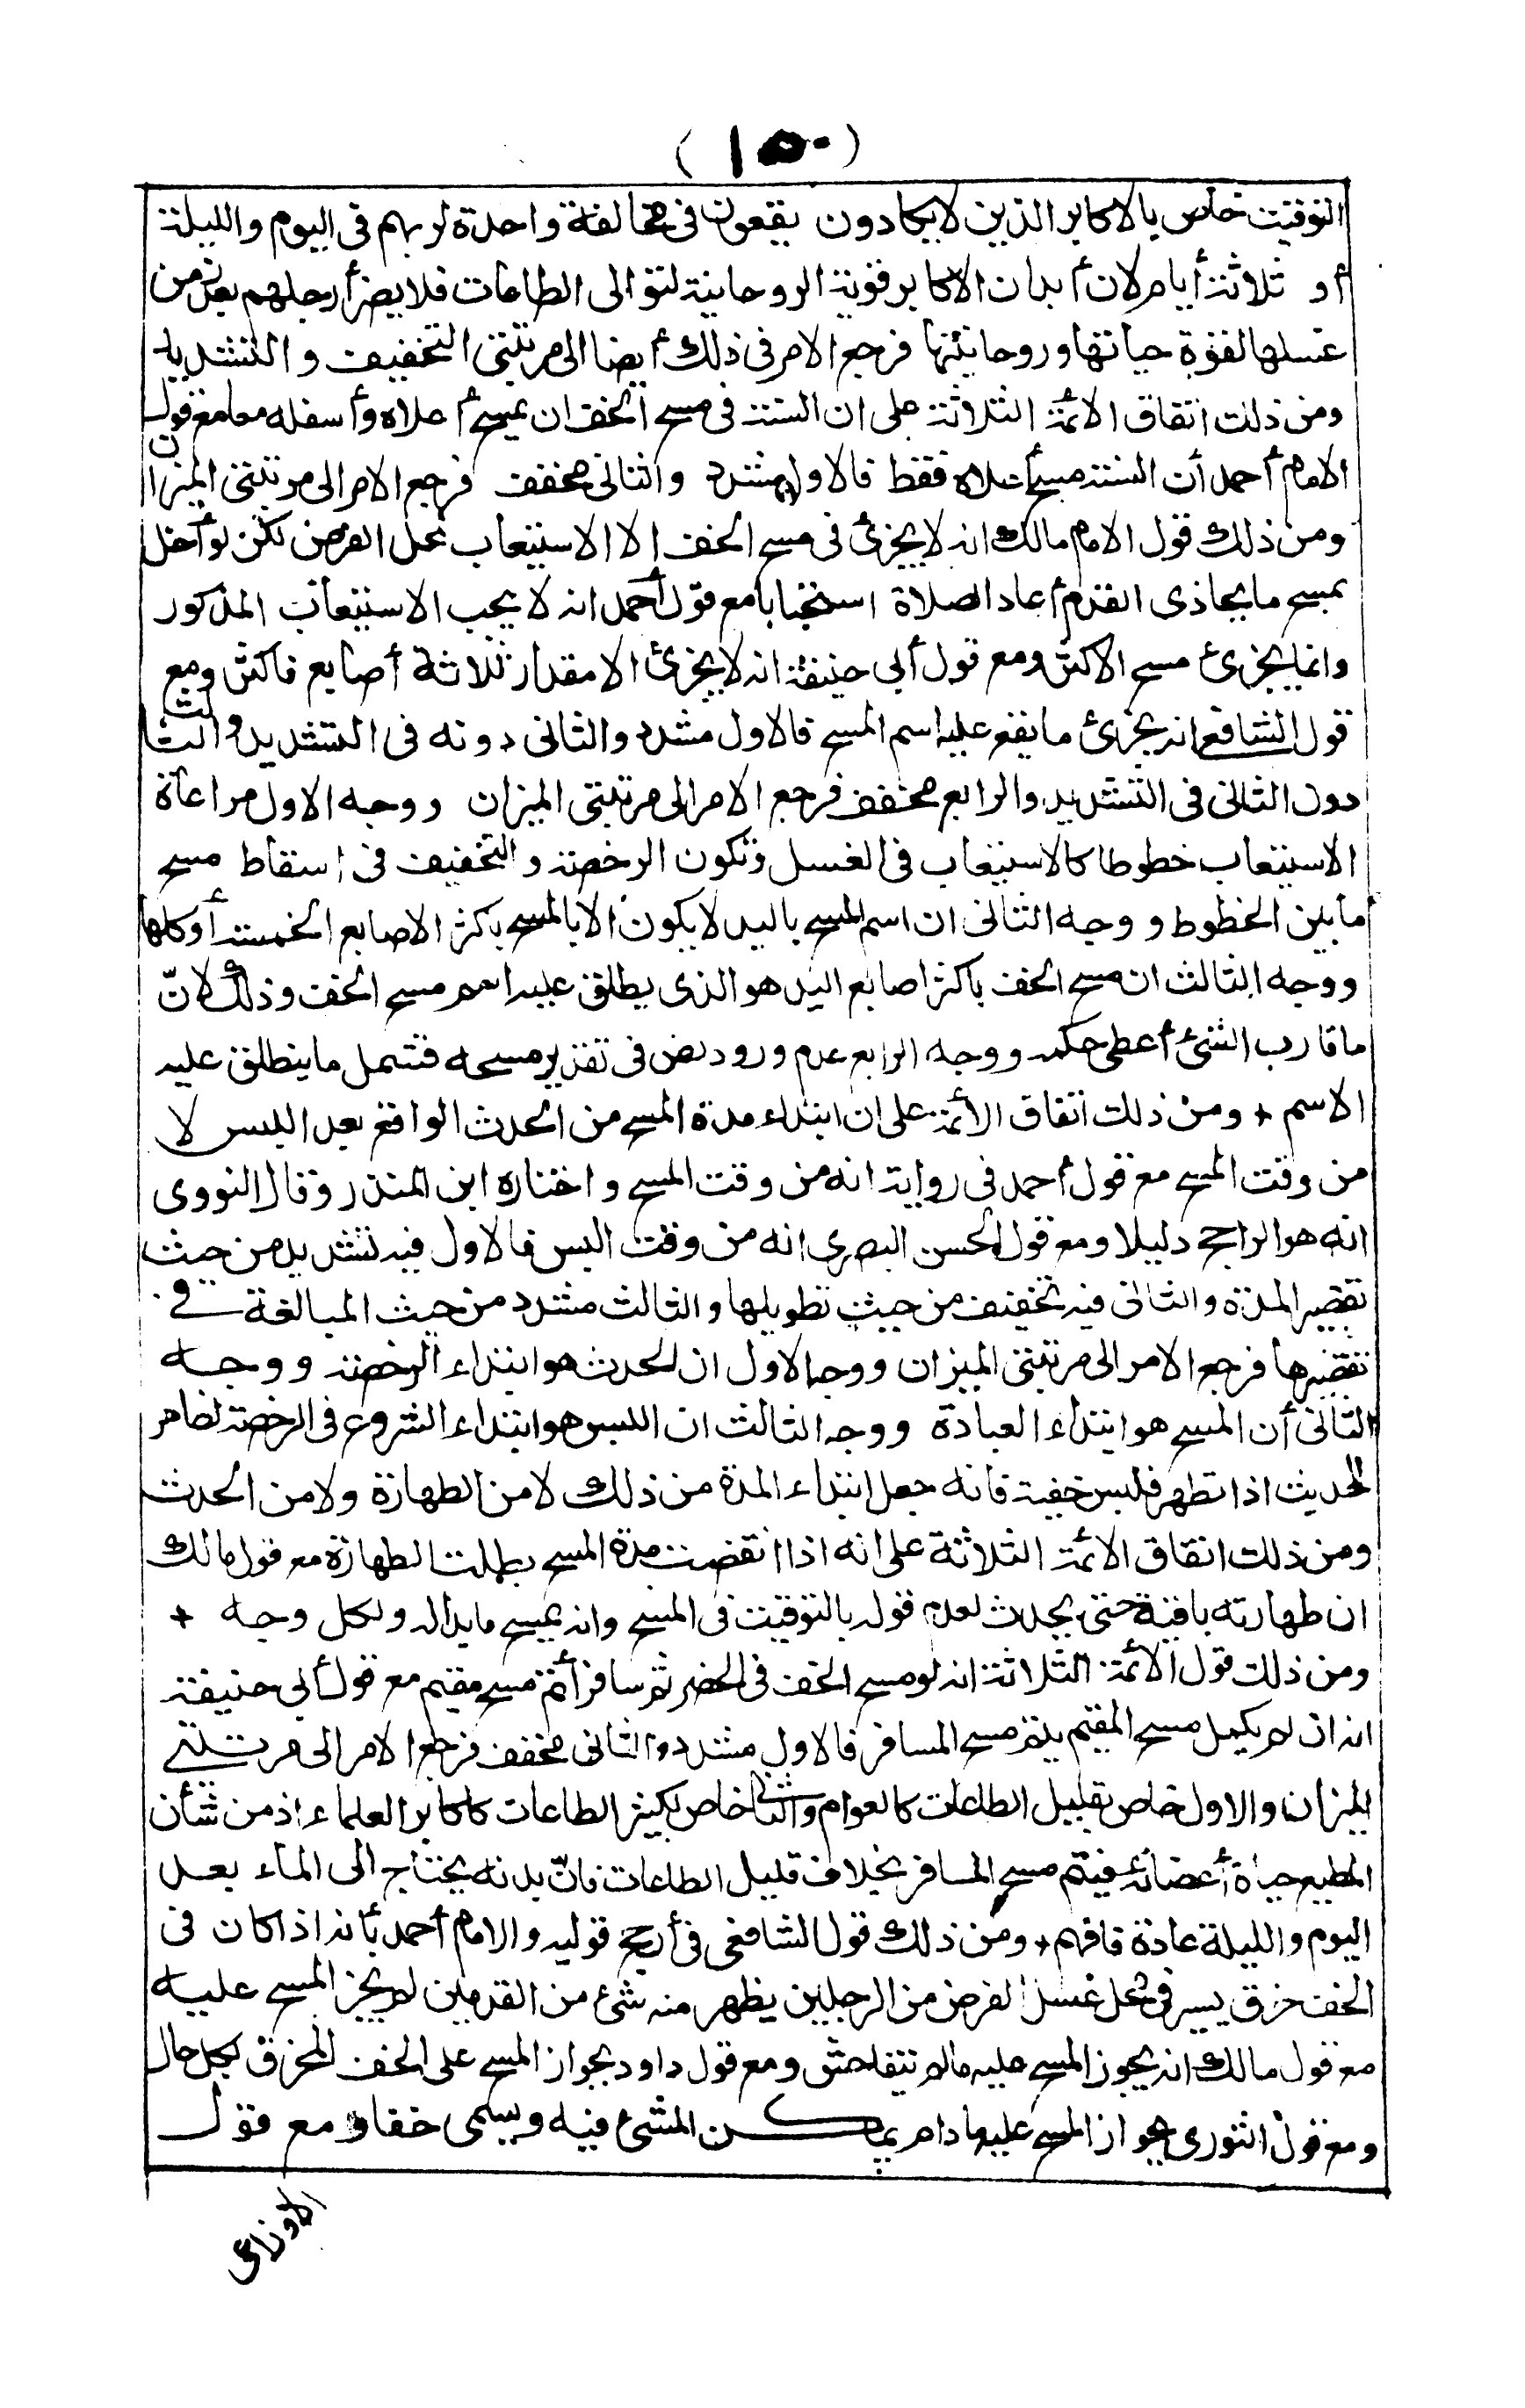 (١٥٠)
التوقيت خاص بالاكابر الذين لا يكادون يقعون في مخالفة واحدة لربهم في اليوم والليلة
أو ثلاثة أيام لان أبدان الاكابر قوية الروحانية لتوالى الطاعات فلا يضر أرجلهم بعد زمن
غسلها لقوة حياتها وروحانيتها فرجع الامر في ذلك أيضا الى مرتبتى التخفيف والتشديد
ومن ذلك اتفاق الائمة الثلاثة على ان السنة في مسح الخف ان يمسح أعلاه وأسفله معا مع قول
الامام أحمد أن السنة مسح أعلاه فقط فالاول مشدد والثانى مخفف فرجع الامر الى مرتبتى الميزان
ومن ذلك قول الامام مالك انه لا يجزئ في مسح الخف الا الاستيعاب لمحل الفرض لكن لو أخل
بمسح ما يحاذى القدم أعاد الصلاة استحبابا مع قول أحمد انه لا يجب الاستيعاب المذكور
وانما يجزئ مسح الاكثر ومع قول أبي حنيفة انه لا يجزئ الا مقدار ثلاثة أصابع فاكثر ومع
قول الشافعي انه يجزئ ما يقع عليه اسم المسح فالاول مشدد والثانى دونه فى التشديد والثالث
دون الثانى في التشديد والرابع مخفف فرجع الامر الى مرتبتى الميزان ووجه الاول مراعاة
الاستيعاب خطوطا كالاستيعاب في الغسل وتكون الرخصة والتخفيف في اسقاط مسح
ما بين الخطوط ووجه الثانى ان اسم المسح باليد لا يكون الا بالمسح باكثر الاصابع الخمسة أو كلها
ووجه الثالث ان مسح الخف باكثر اصابع اليد هو الذى يطلق عليه اسم مسح الخف وذلك لانّ
ما قارب الشئ أعطى حكمه ووجه الرابع عدم ورود نص فى تقدير مسحه فتشمل ما ينطلق عليه
الاسم + ومن ذلك اتفاق الأئمة على ان ابتداء مدة المسح من الحدث الواقع بعد اللبس لا
من وقت المسح مع قول أحمد في رواية انه من وقت المسح واختاره ابن المنذر وقال النووى
انه هو الراجح دليلا ومع قول الحسن البصرى انه من وقت اللبس فالاول فيه تشديد من حيث
تقصير المدة والثانى فيه تخفيف من حيث تطويلها والثالث مشدد من حيث المبالغة في
تقصيرها فرجع الامر الى مرتبتى الميزان ووجه الاول ان الحدث هو ابتداء الرخصة ووجه
الثانى أن المسح هو ابتداء العبادة ووجه الثالث ان اللبس هو ابتداء الشروع فى الرخصة لظاهر
الحديث اذا تطهر فلبس خفيه فانه جعل ابتداء المدة من ذلك لا من الطهارة ولا من الحدث
ومن ذلك اتفاق الائمة الثلاثة على انه اذا انقضت مدة المسح بطلت الطهارة مع قول مالك
ان طهارته باقية حتى يحدث لعدم قوله بالتوقيت في المسح وانه يمسح ما بدا له ولكل وجه +
ومن ذلك قول الأئمة الثلاثة انه لو مسح الخف في الحضر ثم سافر أتم مسح مقيم مع قول أبي حنيفة
انه ان لم يكمل مسح المقيم يتم مسح المسافر فالاول مشدد والثانى مخفف فرجع الامر الى مرتبتى
الميزان والاول خاص بقليل الطاعات كالعوام والثانى خاص بكثير الطاعات كاكابر العلماء اذ من شأن
المطيع حياة أعضائه فيتم مسح المسافر بخلاف قليل الطاعات فانّ بدنه يحتاج الى الماء بعد
اليوم والليلة عادة فافهم + ومن ذلك قول الشافعى فى أرجح قوليه والامام أحمد بأنه اذا كان فى
الخف خرق يسير في محل غسل الفرض من الرجلين يظهر منه شئ من القدمين لم يجز المسح عليه
مع قول مالك انه يجوز المسح عليه مالم يتفاحش ومع قول داود بجواز المسح على الخف المخرق بكل حال
ومع قول الثورى بجواز المسح عليه مادام يمكن المشئ فيه ويسمى خفا ومع قول
الاوزاعى